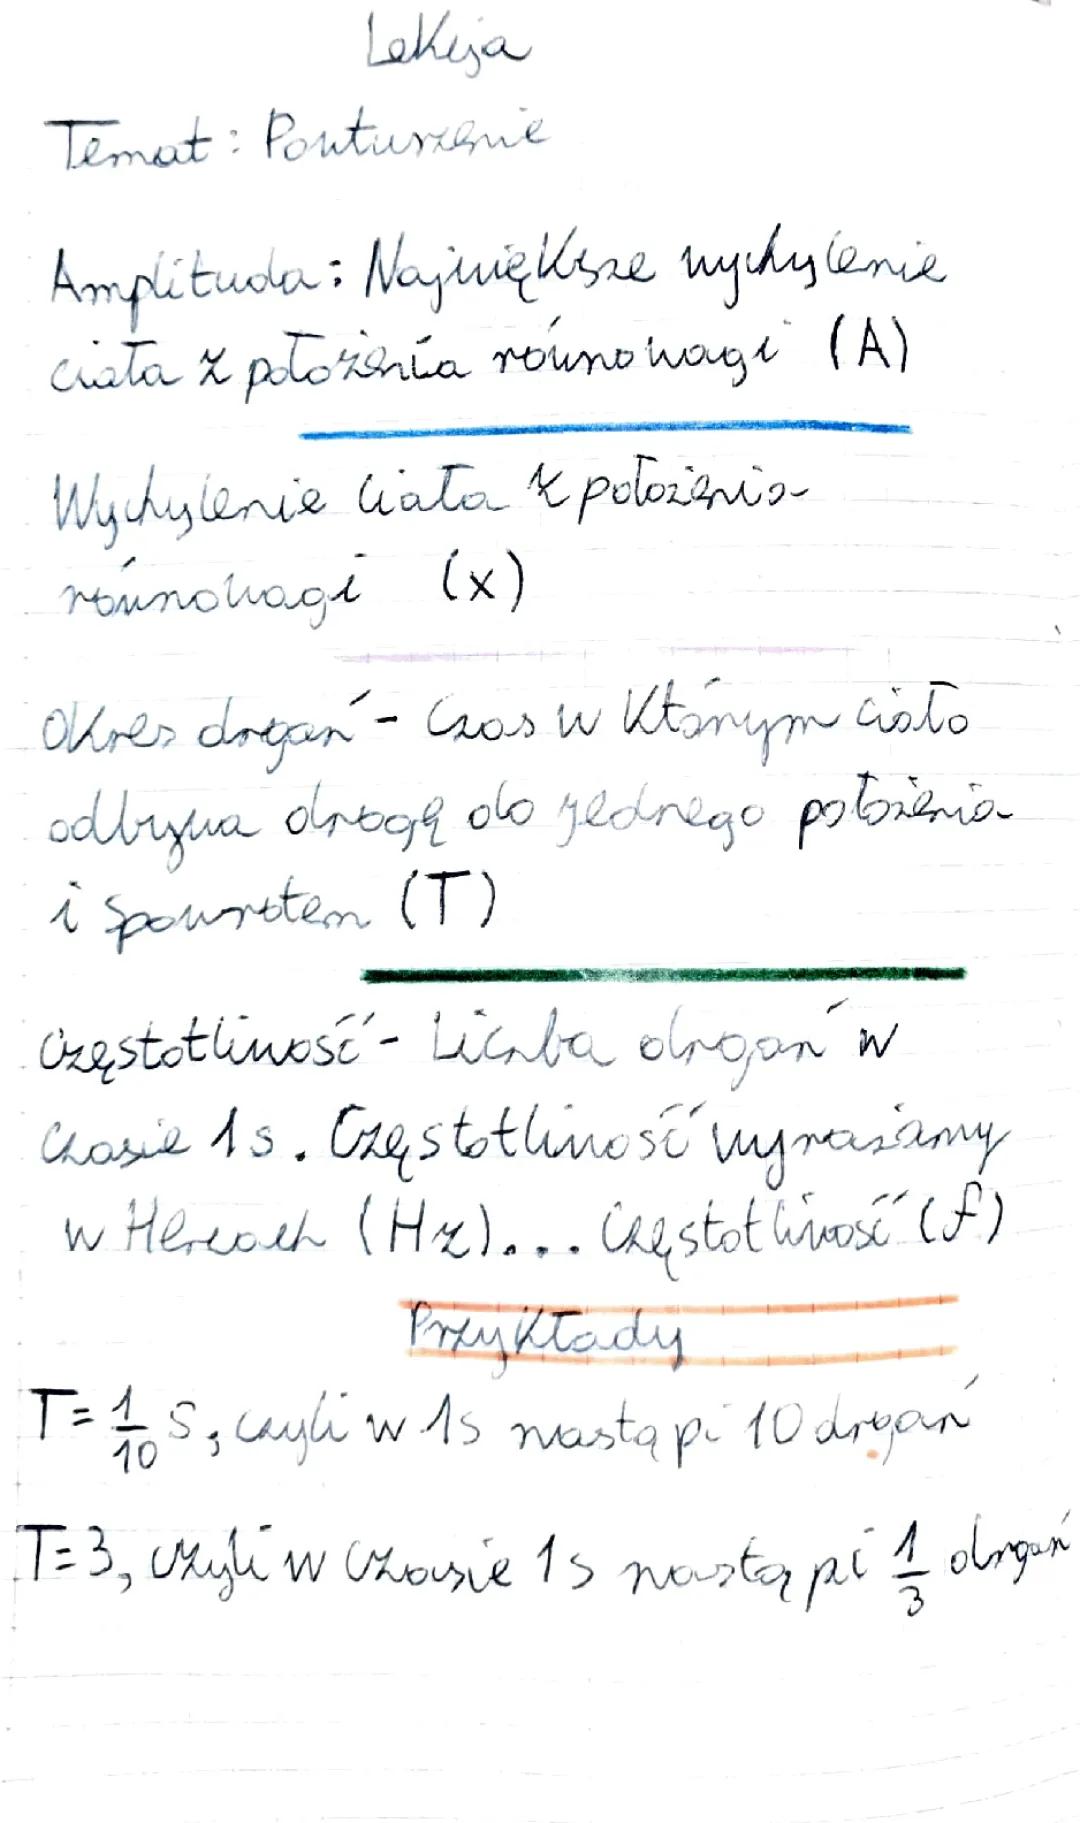 Lekcja
Temat: Powturzenie
Amplituda: Największe wychylenie
ciała z położenia równowagi (A)
Wychylenie ciała z położenia
równowagi (x)
Okres drgań - Czas w którym ciało
odbywa drogę do jednego położenia
i spowrotem (T)
Częstotliwość - Liczba drgań w
czasie 1s. Częstotliwość wyrażamy
w Hercach (Hz)... Częstotliwość (f)
Przykłady
T= 1/10 s, czyli w 1s nastąpi 10 drgań
T=3, czyli w czasie 1s nastąpi 1/3 drgań